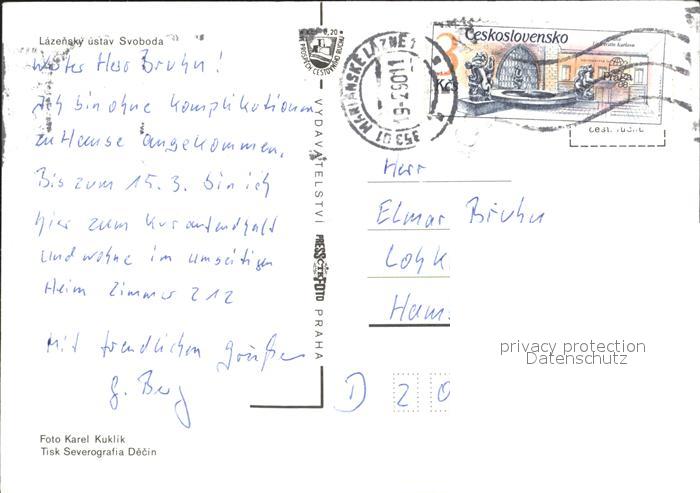 Lázeňský ústav Svoboda
Werter Herr Bruhn!
Ich bin ohne Komplikationen
zu Hause angekommen.
Bis zum 15.3. bin ich
hier zum Kuraufenthalt
und wohne im umseitigen
Heim Zimmer 212
Mit freundlichen Grüßen
G. Berg
Foto Karel Kuklík
Tisk Severografia Děčín
0,20
VE PROSPĚCH CESTOVNÍHO RUCHU
VYDAVATELSTVÍ PRESSFOTO PRAHA
ČTK
353 01 MARIÁNSKÉ LÁZNĚ 1
Československo
3 Kčs
Praga 88
čest. ruchu
Herr
Elmar Bruhn
Lohk
Ham
D 20
privacy protection
Datenschutz